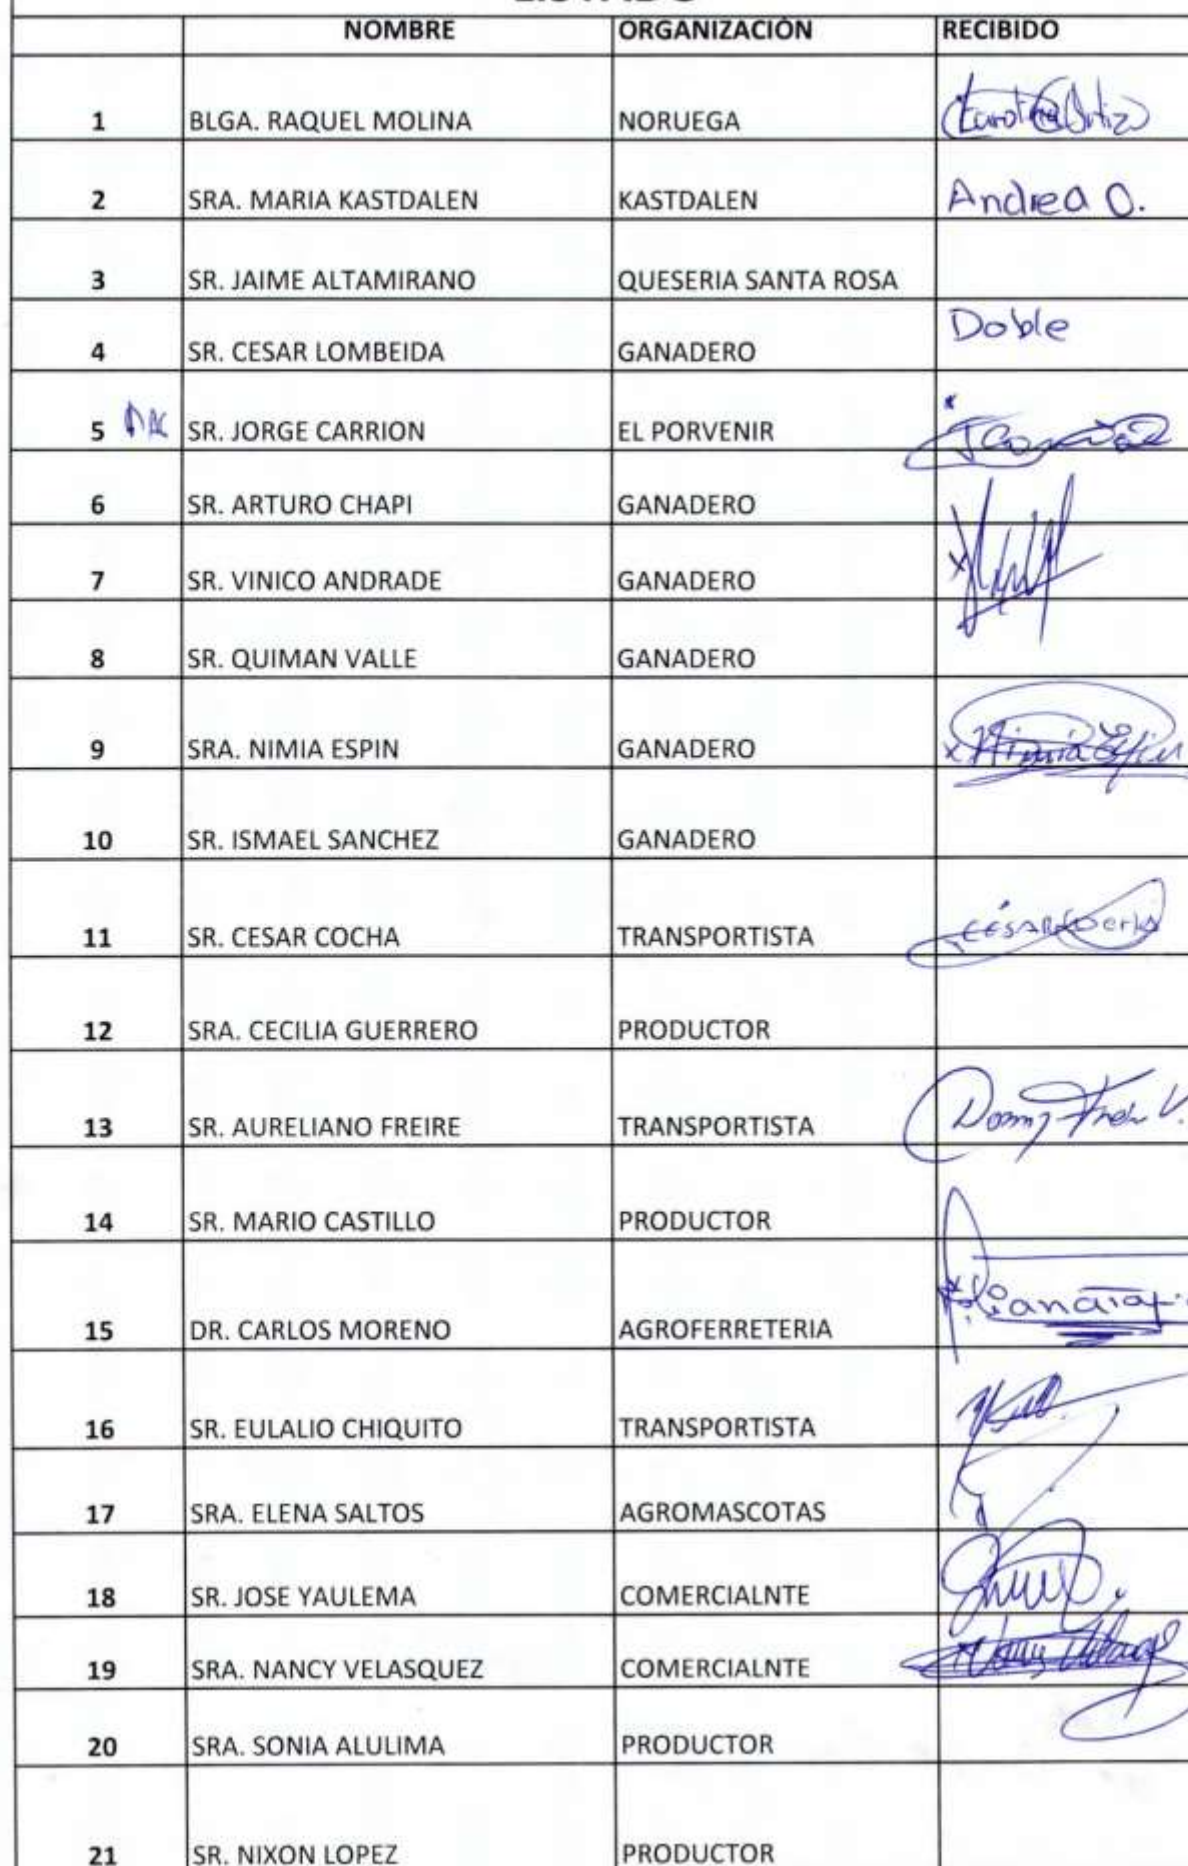 LISTADO
NOMBRE ORGANIZACIÓN RECIBIDO
1 BLGA. RAQUEL MOLINA NORUEGA Carolina Ortiz
2 SRA. MARIA KASTDALEN KASTDALEN Andrea O.
3 SR. JAIME ALTAMIRANO QUESERIA SANTA ROSA
4 SR. CESAR LOMBEIDA GANADERO Doble
5 SR. JORGE CARRION EL PORVENIR
6 SR. ARTURO CHAPI GANADERO
7 SR. VINICO ANDRADE GANADERO
8 SR. QUIMAN VALLE GANADERO
9 SRA. NIMIA ESPIN GANADERO x Nimia Espin
10 SR. ISMAEL SANCHEZ GANADERO
11 SR. CESAR COCHA TRANSPORTISTA CÉSAR
12 SRA. CECILIA GUERRERO PRODUCTOR
13 SR. AURELIANO FREIRE TRANSPORTISTA
14 SR. MARIO CASTILLO PRODUCTOR
15 DR. CARLOS MORENO AGROFERRETERIA
16 SR. EULALIO CHIQUITO TRANSPORTISTA
17 SRA. ELENA SALTOS AGROMASCOTAS
18 SR. JOSE YAULEMA COMERCIALNTE
19 SRA. NANCY VELASQUEZ COMERCIALNTE
20 SRA. SONIA ALULIMA PRODUCTOR
21 SR. NIXON LOPEZ PRODUCTOR